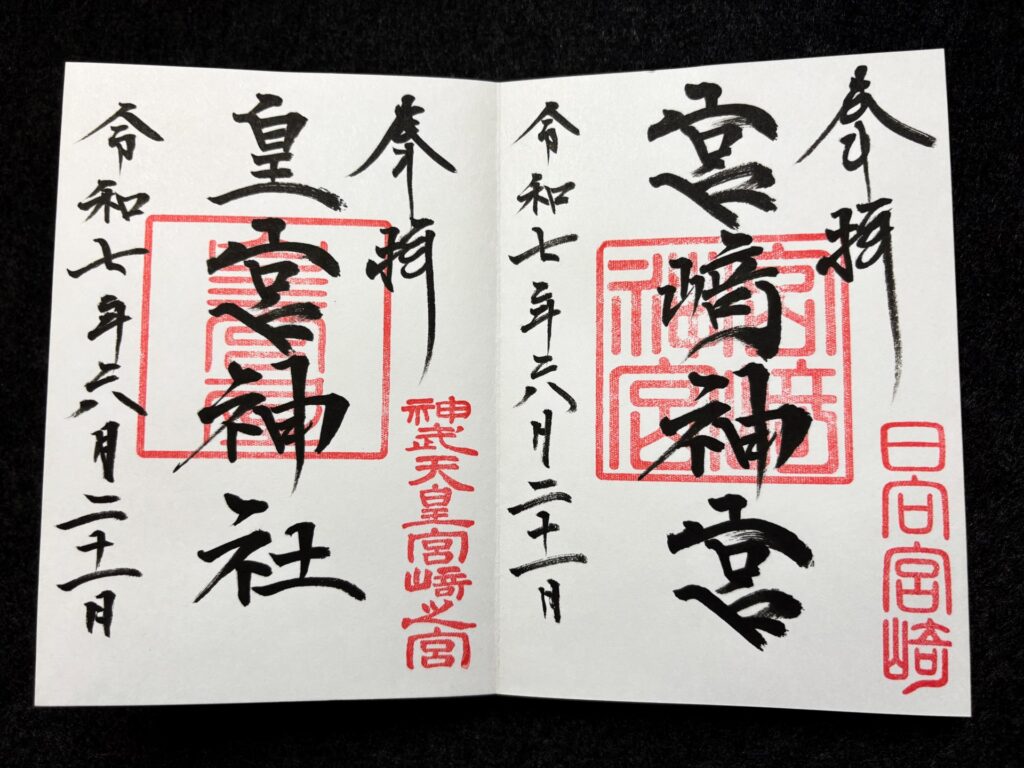 奉拝
日向宮崎
宮﨑神宮
宮﨑神宮
令和七年六月二十一日
奉拝
神武天皇宮崎之宮
皇宮神社
令和七年六月二十一日